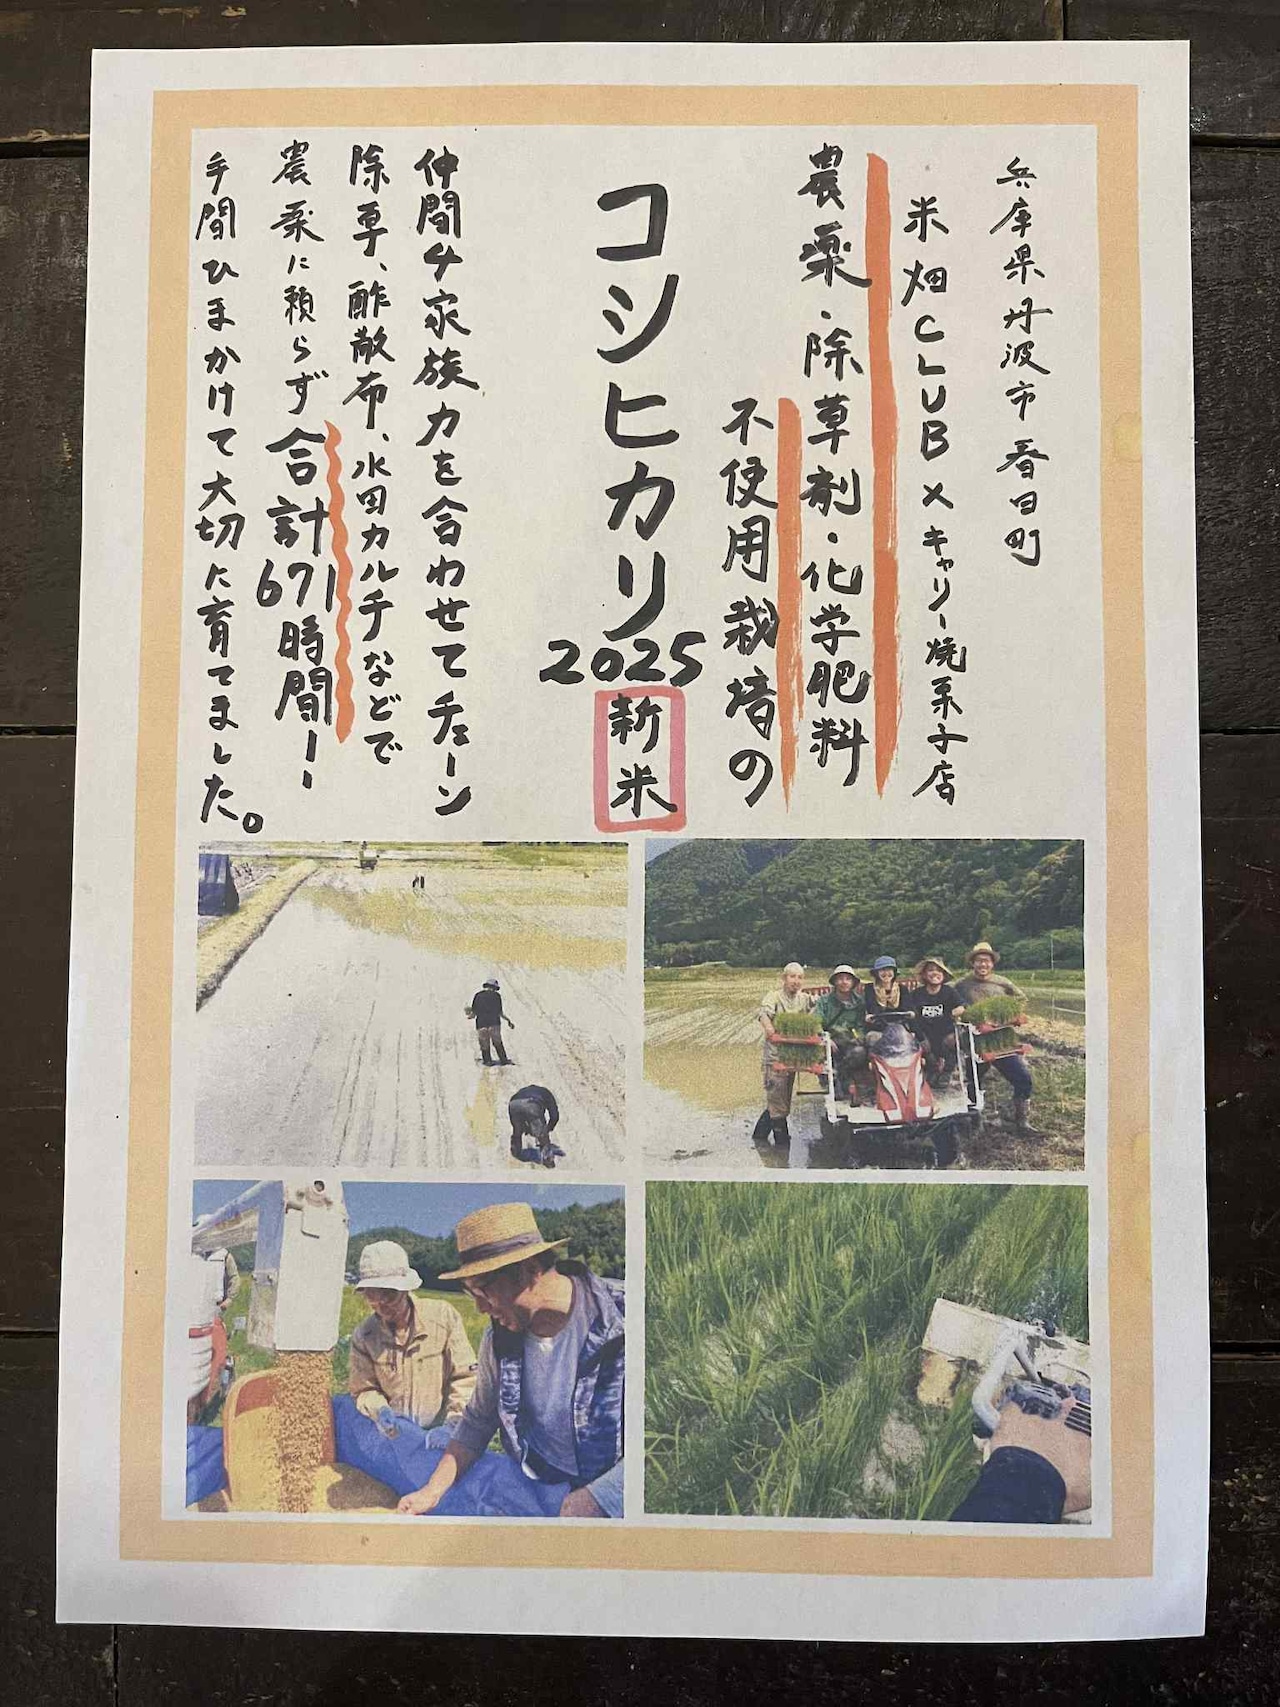 兵庫県丹波市春日町
米畑CLUB×キャリー焼菓子店
農薬・除草剤・化学肥料
不使用栽培の
コシヒカリ
2025
新米
仲間4家族力を合わせてチェーン
除草、酢散布、水田カルチなどで
農薬に頼らず合計671時間！
手間ひまかけて大切に育てました。